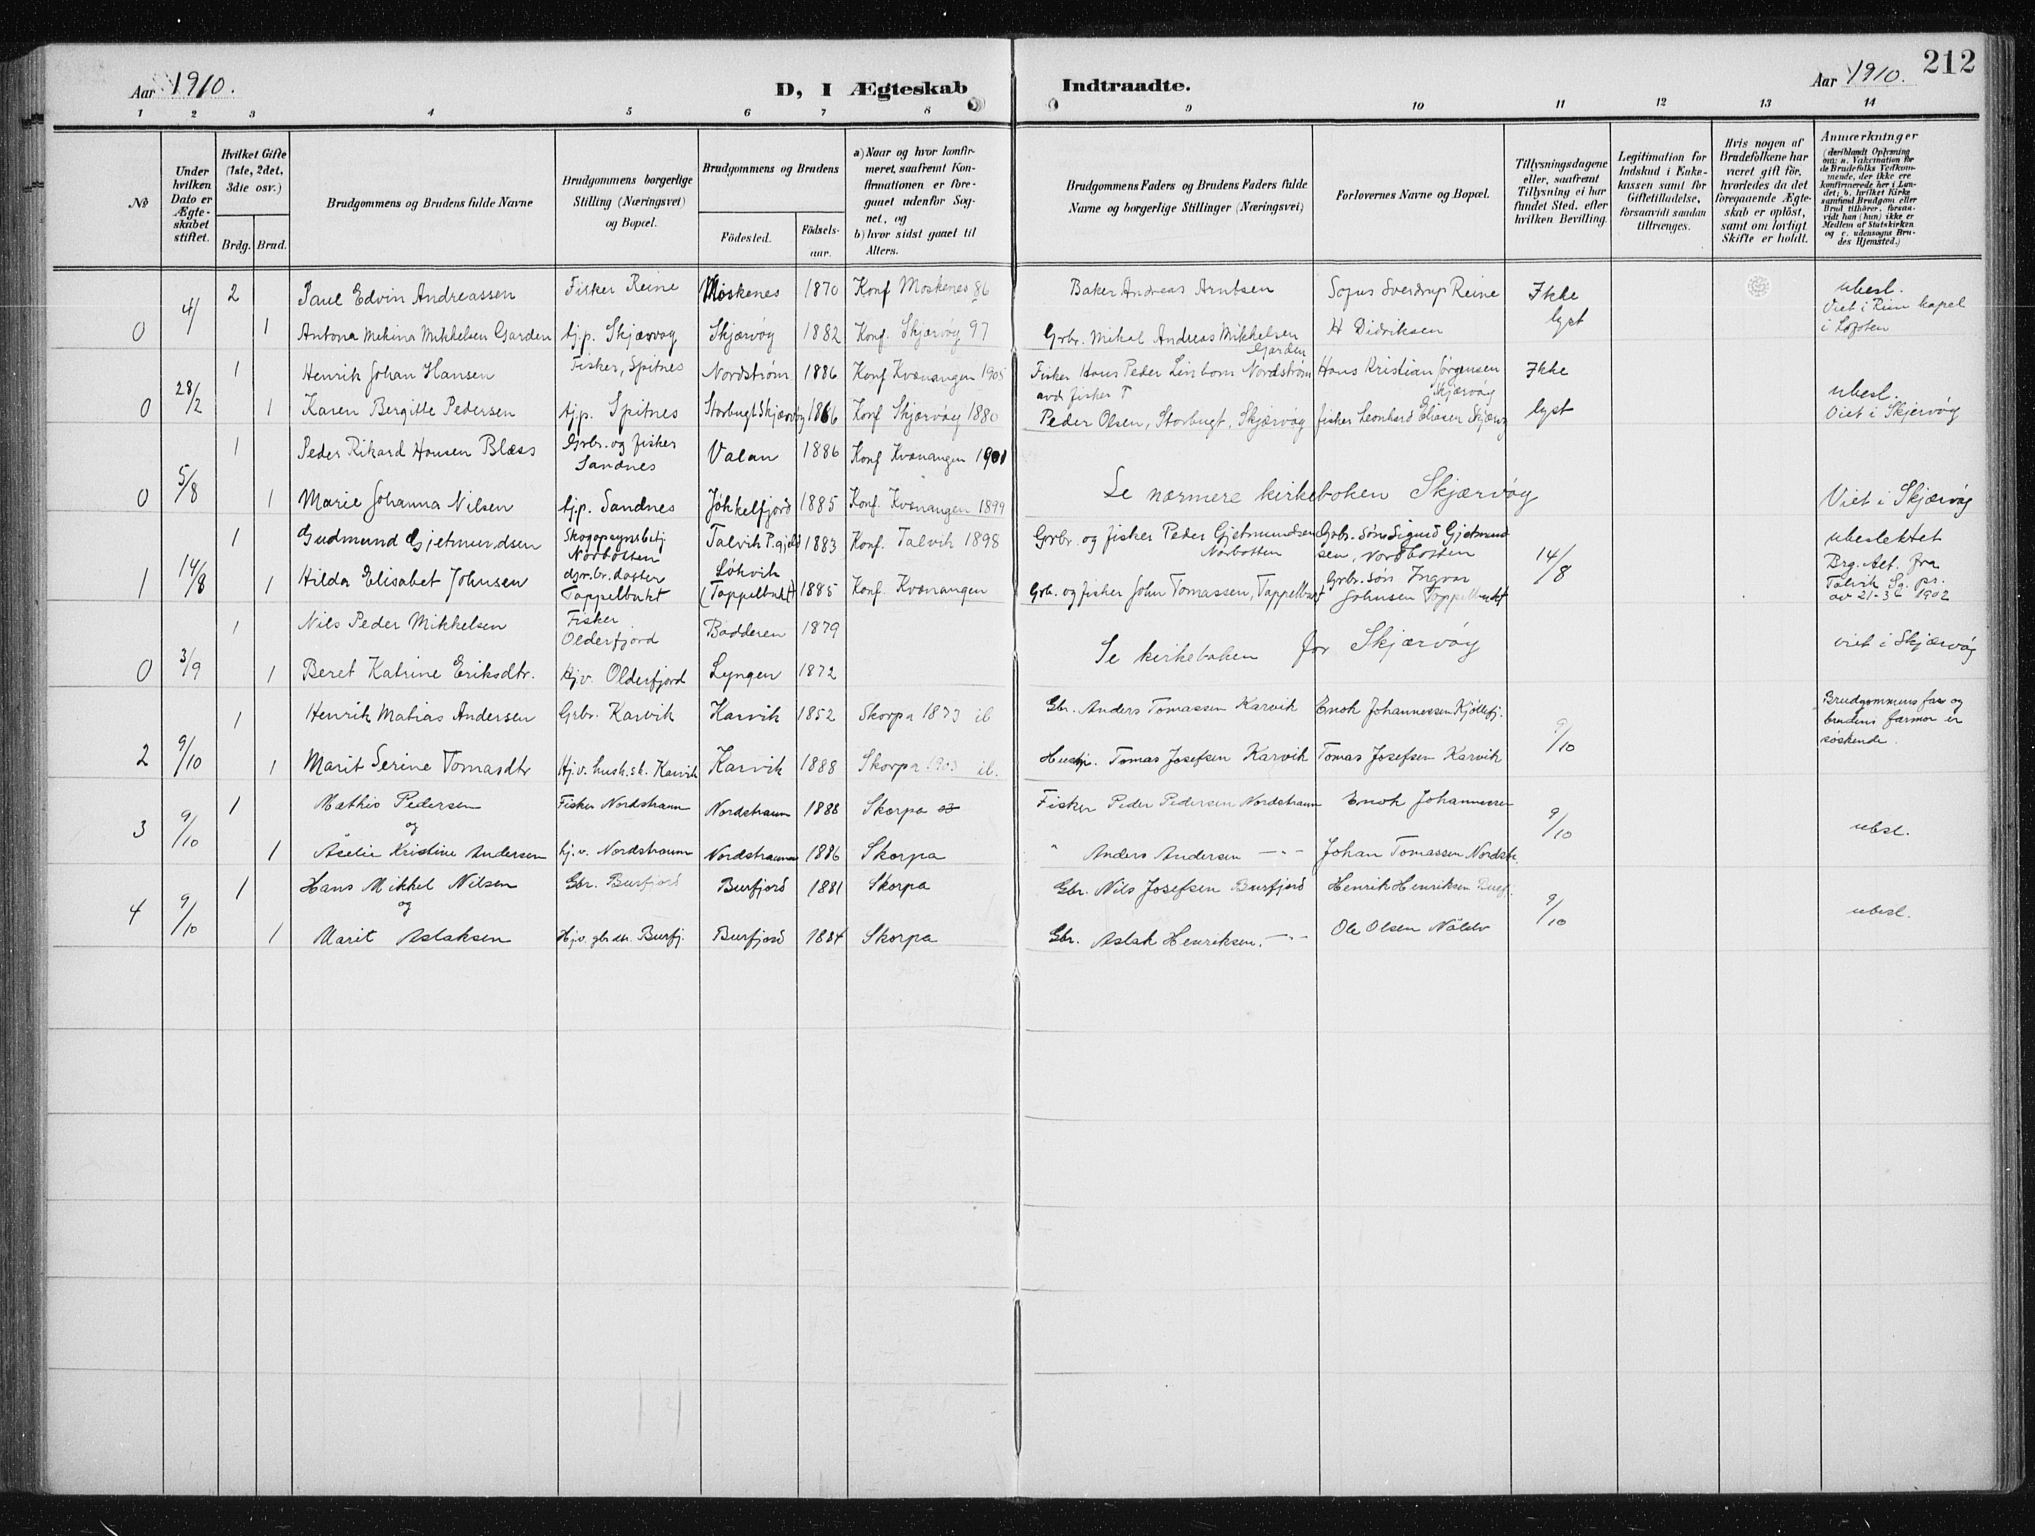 Aar 1910.
D, I Ægteskab
Indtraadte.
Aar 1910.
212
1 2 3 4 5 6 7 8 9 10 11 12 13 14
No
Under hvilken Dato er Ægteskabet stiftet.
Hvilket Gifte (1ste, 2det, 3die osv.)
Brdg. Brud.
Brudgommens og Brudens fulde Navne
Brudgommens borgerlige Stilling (Næringsvei) og Bopæl.
Brudgommens og Brudens
Fødested.
Fødsels-aar.
a) Naar og hvor konfirmeret, saafremt Konfirmationen er foregaaet udenfor Sognet, og
b) hvor sidst gaaet til Alters.
Brudgommens Faders og Brudens Faders fulde Navne og borgerlige Stillinger (Næringsvei)
Forlovernes Navne og Bopæl.
Tillysningsdagene eller, saafremt Tillysning ei har fundet Sted, efter hvilken Bevilling.
Legitimation for Indskud i Enkekassen samt for Giftetilladelse, forsaavidt saadan tiltrænges.
Hvis nogen af Brudefolkene har været gift før, hvorledes da det foregaaende Ægteskab er opløst, samt om lovligt Skifte er holdt.
Anmærkninger
(deriblandt Oplysning om: a. Vakcination for de Brudefolks Vedkommende, der ikke ere konfirmerede her i Landet; b. hvilket Kirkesamfund Brudgom eller Brud tilhører, forsaavidt han (hun) ikke er Medlem af Statskirken og c. udensogns Brudes Hjemsted.)
2 Paul Edvin Andreassen Fisker Reine Moskenes 1870 Konf Moskenes 86 Baker Andreas Arntsen Sofus Sverdrup Reine Ikke ubesl.
0 4/ 1 Antona Mekina Mikkelsen Garden hj.p. Skjærvøy Skjærvøy 1882 Konf. Skjærvøy 97 Grbr. Mikal Andreas Mikkelsen Garden H Didriksen lyst Viet i Rein kapel i Lofoten
1 Henrik Johan Hansen Fisker, Spitnes Nordstrøm 1886 Konf Kvænangen 1905 Fisker Hans Peder Linbom Nordstrøm Hans Kristian Jørgensen Skjærvøy Ikke
0 28/2 1 Karen Bergitte Pedersen hj.p. Spitnes Storbugt Skjærvøy 1866 Konf Skjærvøy 1880 avd fisker Peder Olsen, Storbugt, Skjærvøy fisker Leonhard Eliasen Skjærvøy lyst ubesl. Viet i Skjervøy
1 Peder Rikard Hansen Blæss Grbr. og fisker Sandnes Valan 1886 Konf Kvænangen 1901
0 5/8 1 Marie Johanna Nilsen hj.p. Sandnes Jøhkelfjord 1885 Konf. Kvænangen 1899 Se nærmere kirkeboken Skjærvøy Viet i Skjærvøy
1 Gudmund Gjetmundsen Skogopsynsbetj Norbotten Talvik P.gjeld 1883 Konf. Talvik 1898 Grbr. og fisker Peder Gjetmundsen Norbotten Grbr. Søn Sigurd Gjetmundsen, Nordbotten ubeslektet
1 14/8 1 Hilda Elisabet Johnsen grbr. doster Tappelbukt Løkvik (Tappelbukt) 1885 Konf. Kvænangen Grb. og fisker John Tomassen, Tappelbugt Grbr. Søn Ingvar Johnsen Tappelbukt 14/8 Brg. Alt. fra Talvik Sg. pr. av 21-3 1902
1 Nils Peder Mikkelsen Fisker Olderfjord Badderen 1879
0 3/9 1 Beret Katrine Eriksdtr. Hjv. Olderfjord Lyngen 1872 Se kirkeboken for Skjærvøy viet i Skjærvøy
1 Henrik Matias Andersen Grbr. Karvik Karvik 1852 Skorpa 1873 ib Gbr. Anders Tomassen Karvik Enok Johannessen Kjøllefj. Brudgommens far og brudens farmor er søskende.
2 9/10 1 Marit Serine Tomasdtr Hj.v. hush.sk. Karvik Karvik 1888 Skorpa 1903 ib. Tomas Josefsen Karvik Tomas Josefsen Karvik 9/10
1 Mathis Pedersen Fisker Nordstraum Nordstraum 1888 Skorpa 03 Fisker Peder Pedersen Nordstraum Enok Johannessen
3 9/10 og 9/10 ubsl.
1 Aselie Kristine Andersen hj.v. Nordstraum Nordstraum 1886 Skorpa " Anders Andersen —"— Johan Tomassen Nordstr.
1 Hans Mikkel Nilsen Gbr. Burfjord Burfjord 1881 Skorpa Gbr. Nils Josefsen Burfjord Henrik Henriksen Burfj.
4 9/10 og 9/10 ubesl.
1 Marit Aslaksen Hjv. gbrdtr. Burfj. Burfjord 1884 Skorpa Gbr. Aslak Henriksen. —"— Ole Olsen